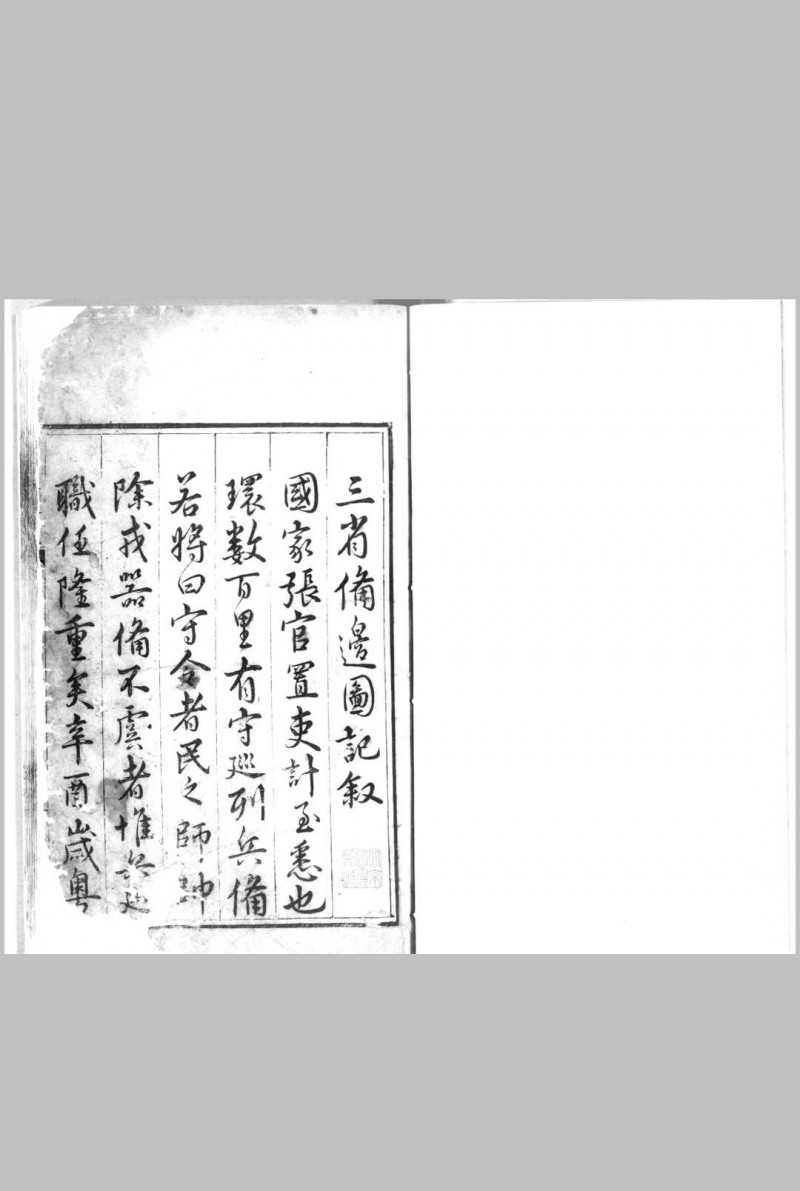 三省備邊圖記叙
國家張官置吏計至悉也
環數百里有守廵列兵備
若將曰守令者民之師帥
除戎器備不虞者惟
職任隆重矣辛酉歲粵